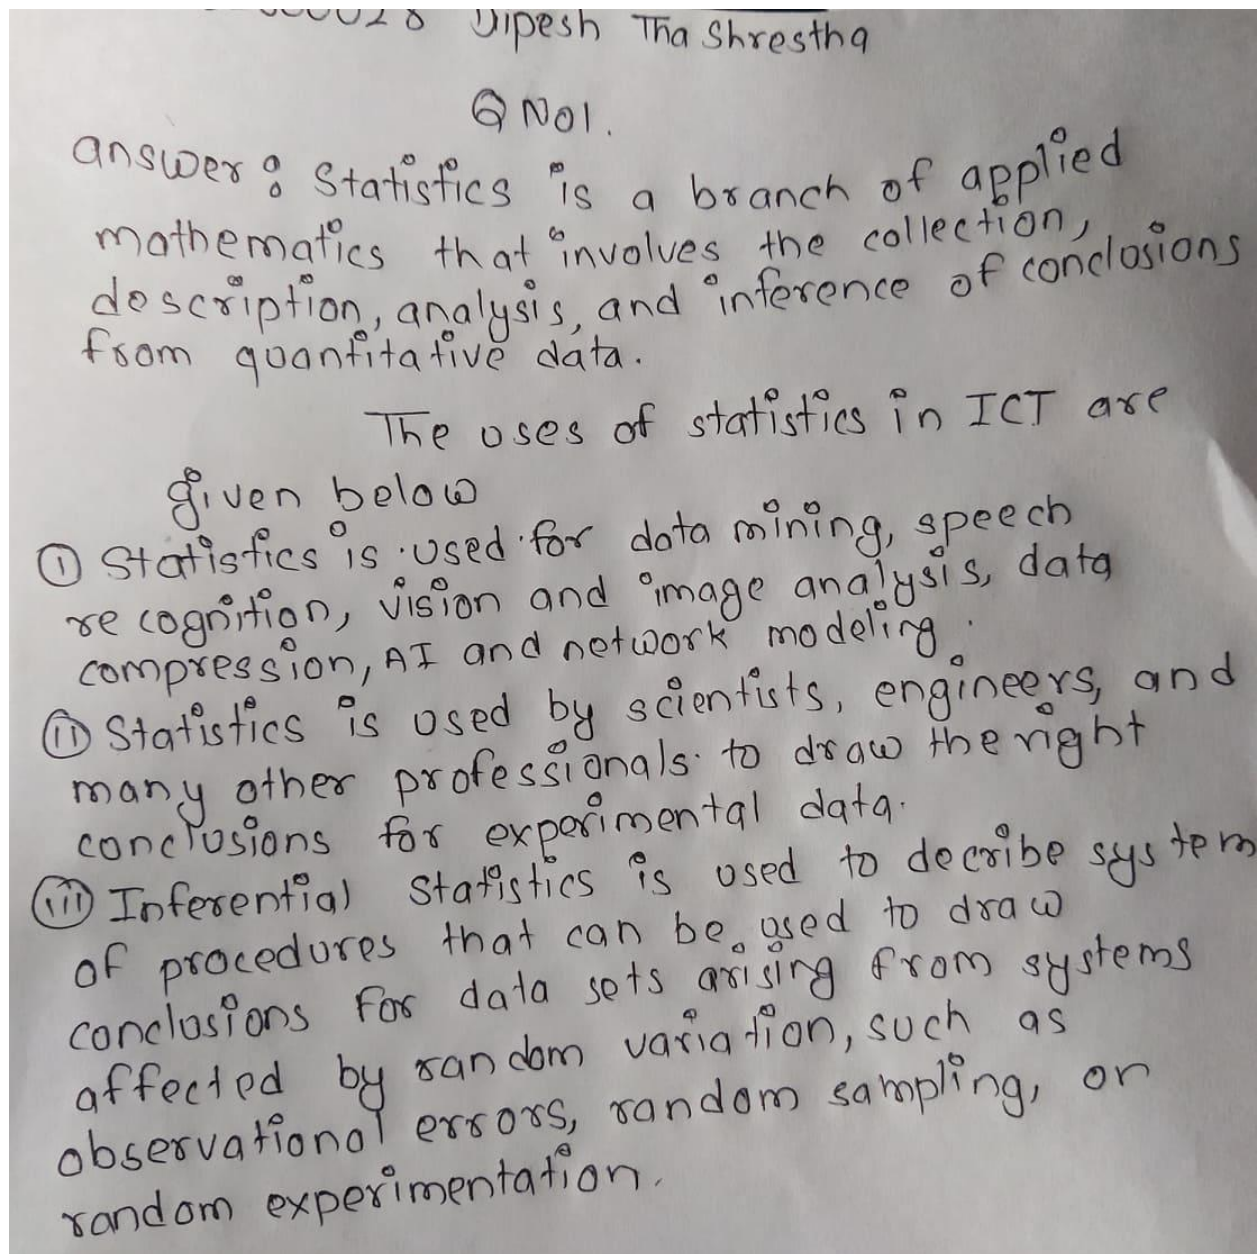 028 Dipesh Tha Shrestha
Q NO1.
answer : Statistics is a branch of applied
mathematics that involves the collection,
description, analysis, and inference of conclusions
from quantitative data.
The uses of statistics in ICT are
given below
(i) Statistics is used for data mining, speech
recognition, vision and image analysis, data
compression, AI and network modeling.
(ii) Statistics is used by scientists, engineers, and
many other professionals to draw the right
conclusions for experimental data.
(iii) Inferential Statistics is used to decribe system
of procedures that can be used to draw
conclusions for data sets arising from systems
affected by random variation, such as
observational errors, random sampling, or
random experimentation.